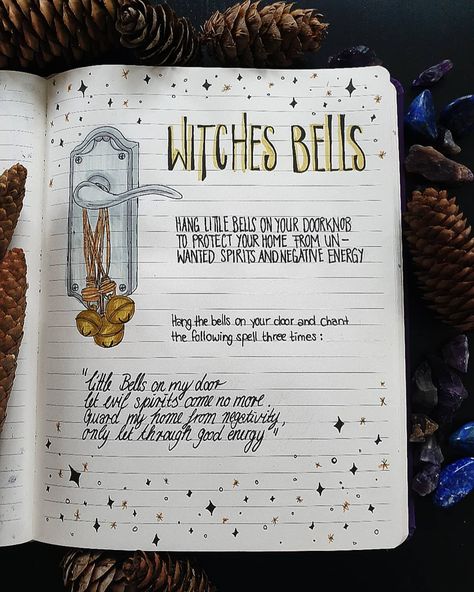 WITCHES BELLS
HANG LITTLE BELLS ON YOUR DOORKNOB
TO PROTECT YOUR HOME FROM UN-
WANTED SPIRITS AND NEGATIVE ENERGY
Hang the bells on your door and chant
the following spell three times:
"Little Bells on my door
let evil spirits come no more.
Guard my home from negativity,
only let through good energy"